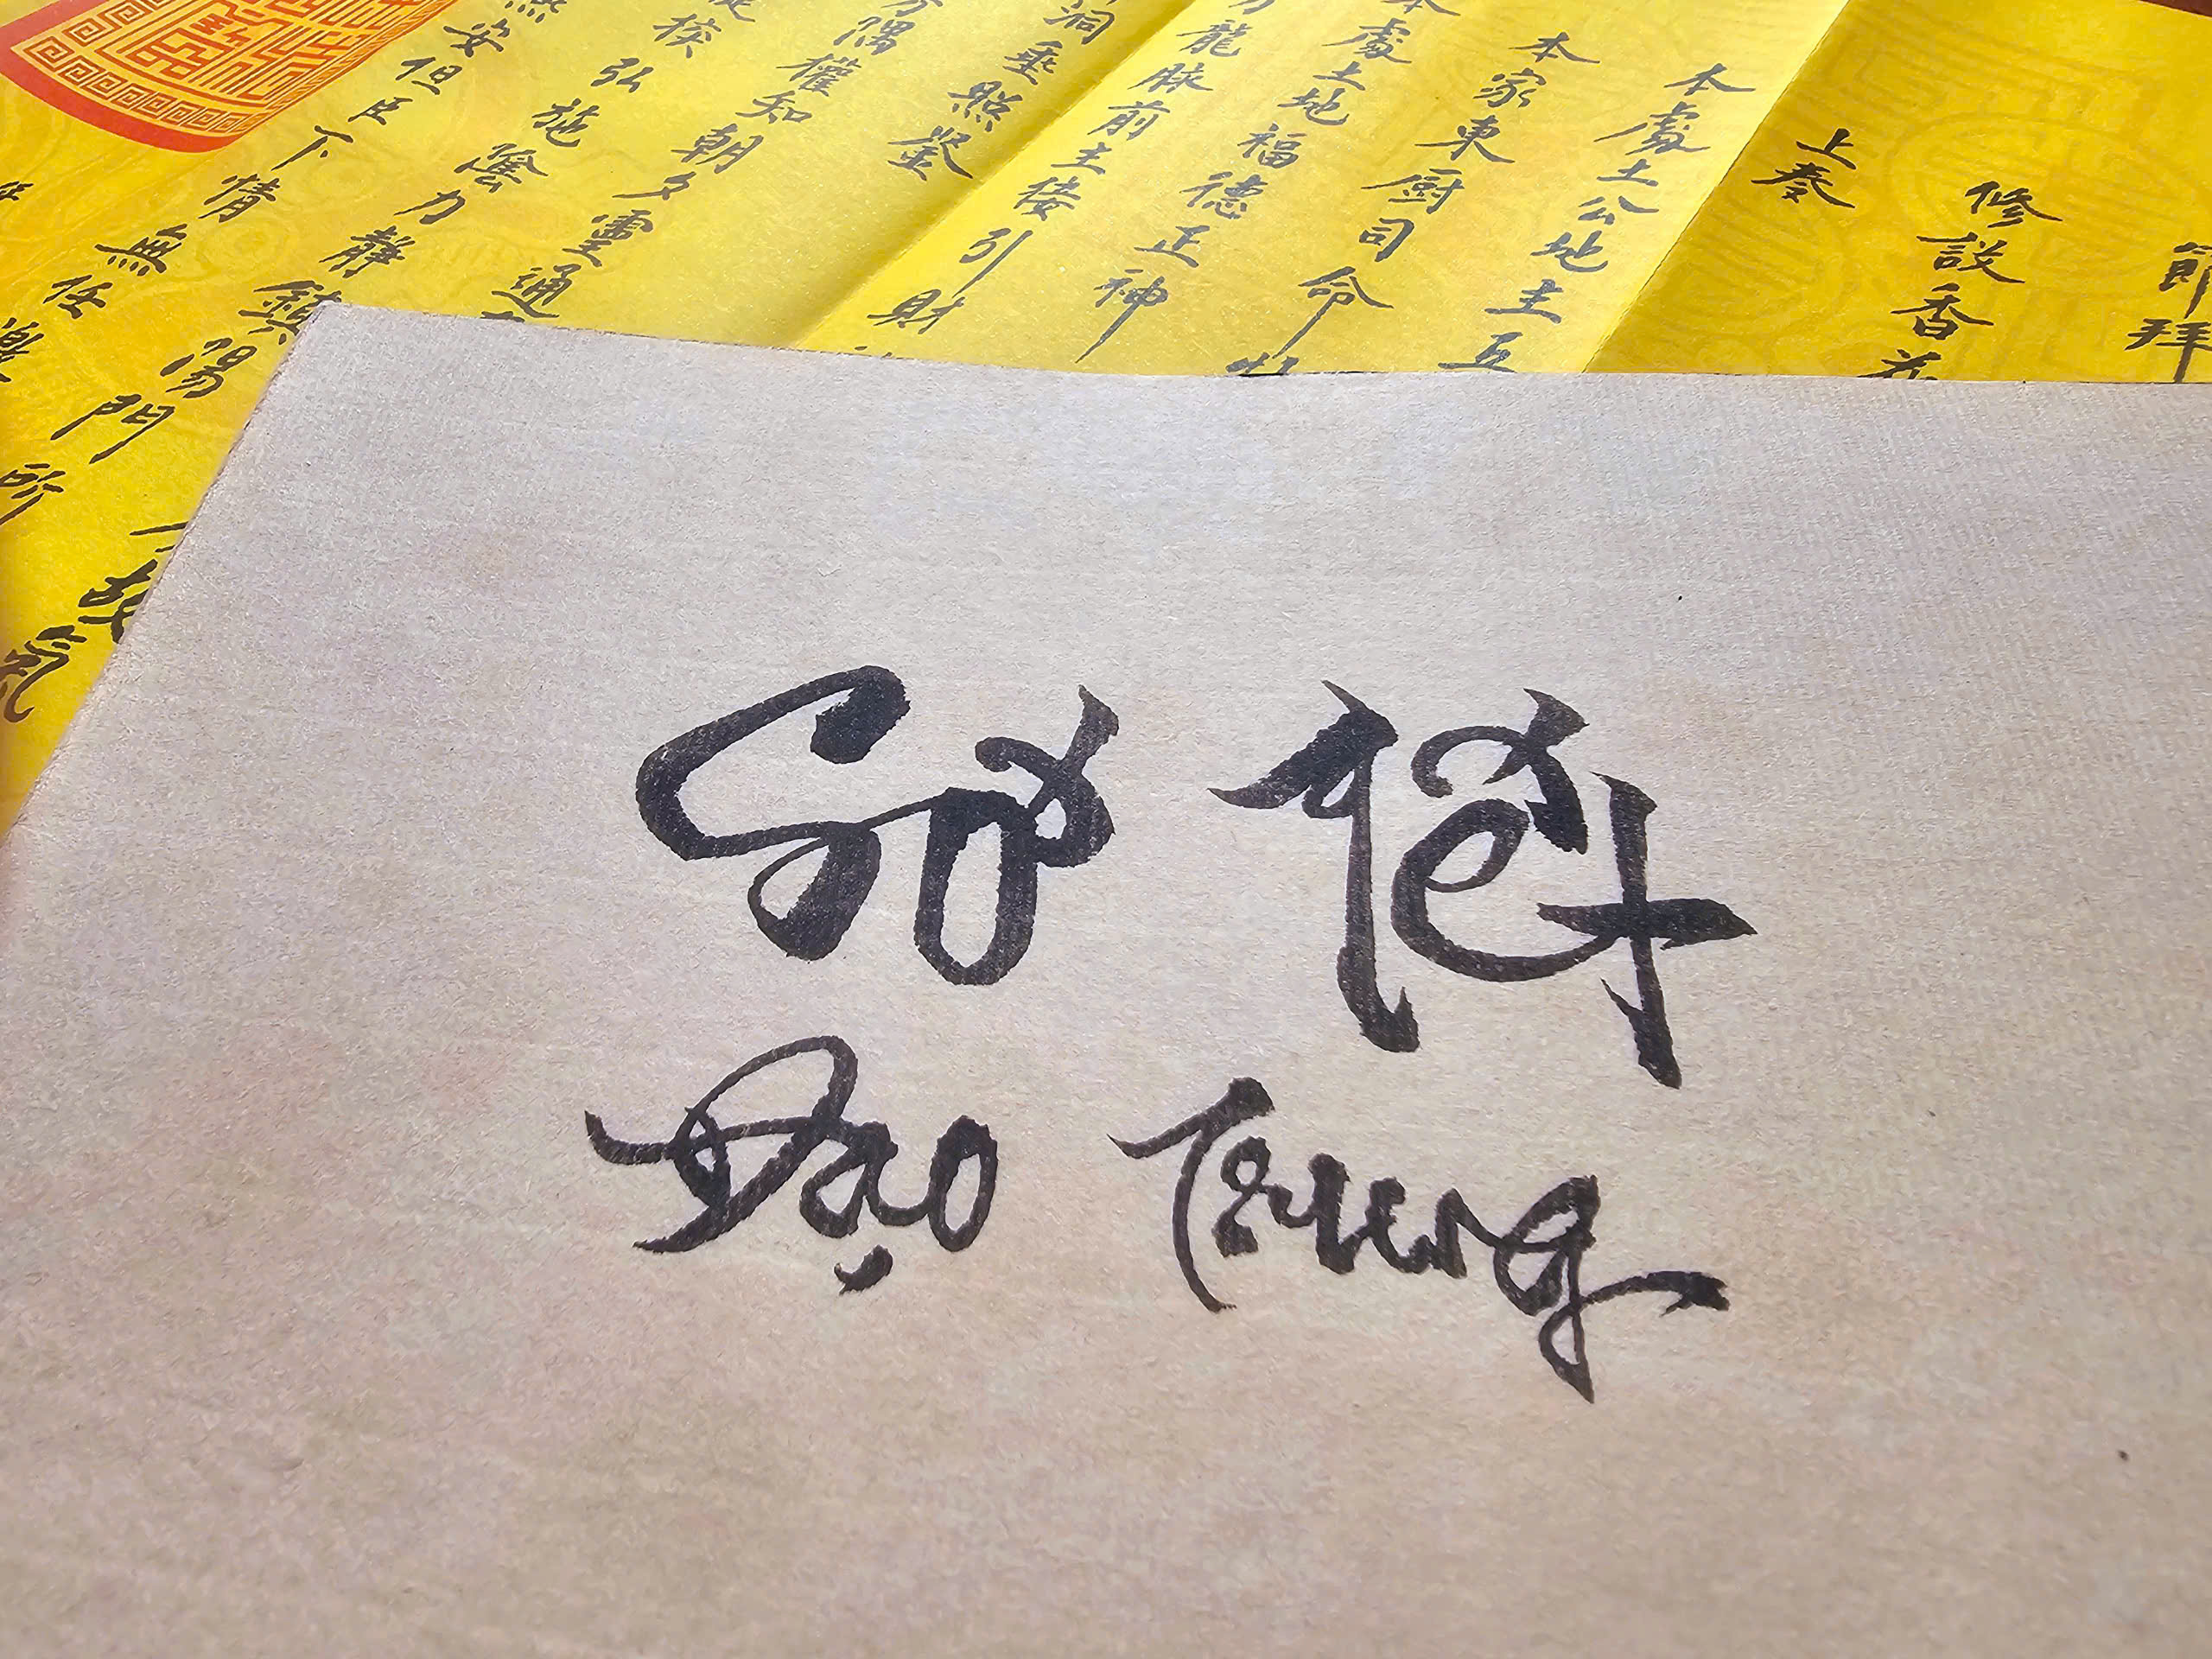 Sớ Tết
Đạo Trung
節拜
修設香
上奏
本處土公地主五
本家東厨司命
本處土地福德正神
龍脉前主接引財
洞垂照鑒
隅權知朝夕靈通
校弘施陰力靜鎮陽門
安但臣下情無任
所
氣